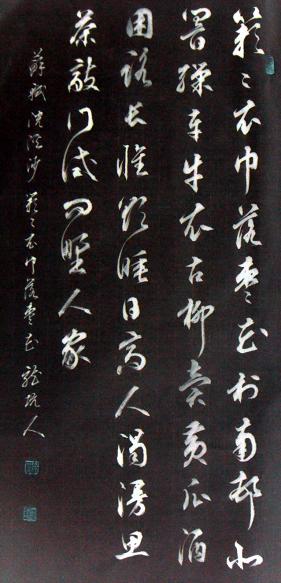 簌〻衣巾落枣花村南村北
响缫车牛衣古柳卖黄瓜酒
困路长惟欲睡日高人渴漫思
茶敲门试问野人家
苏轼浣溪沙 簌〻衣巾落枣花 人